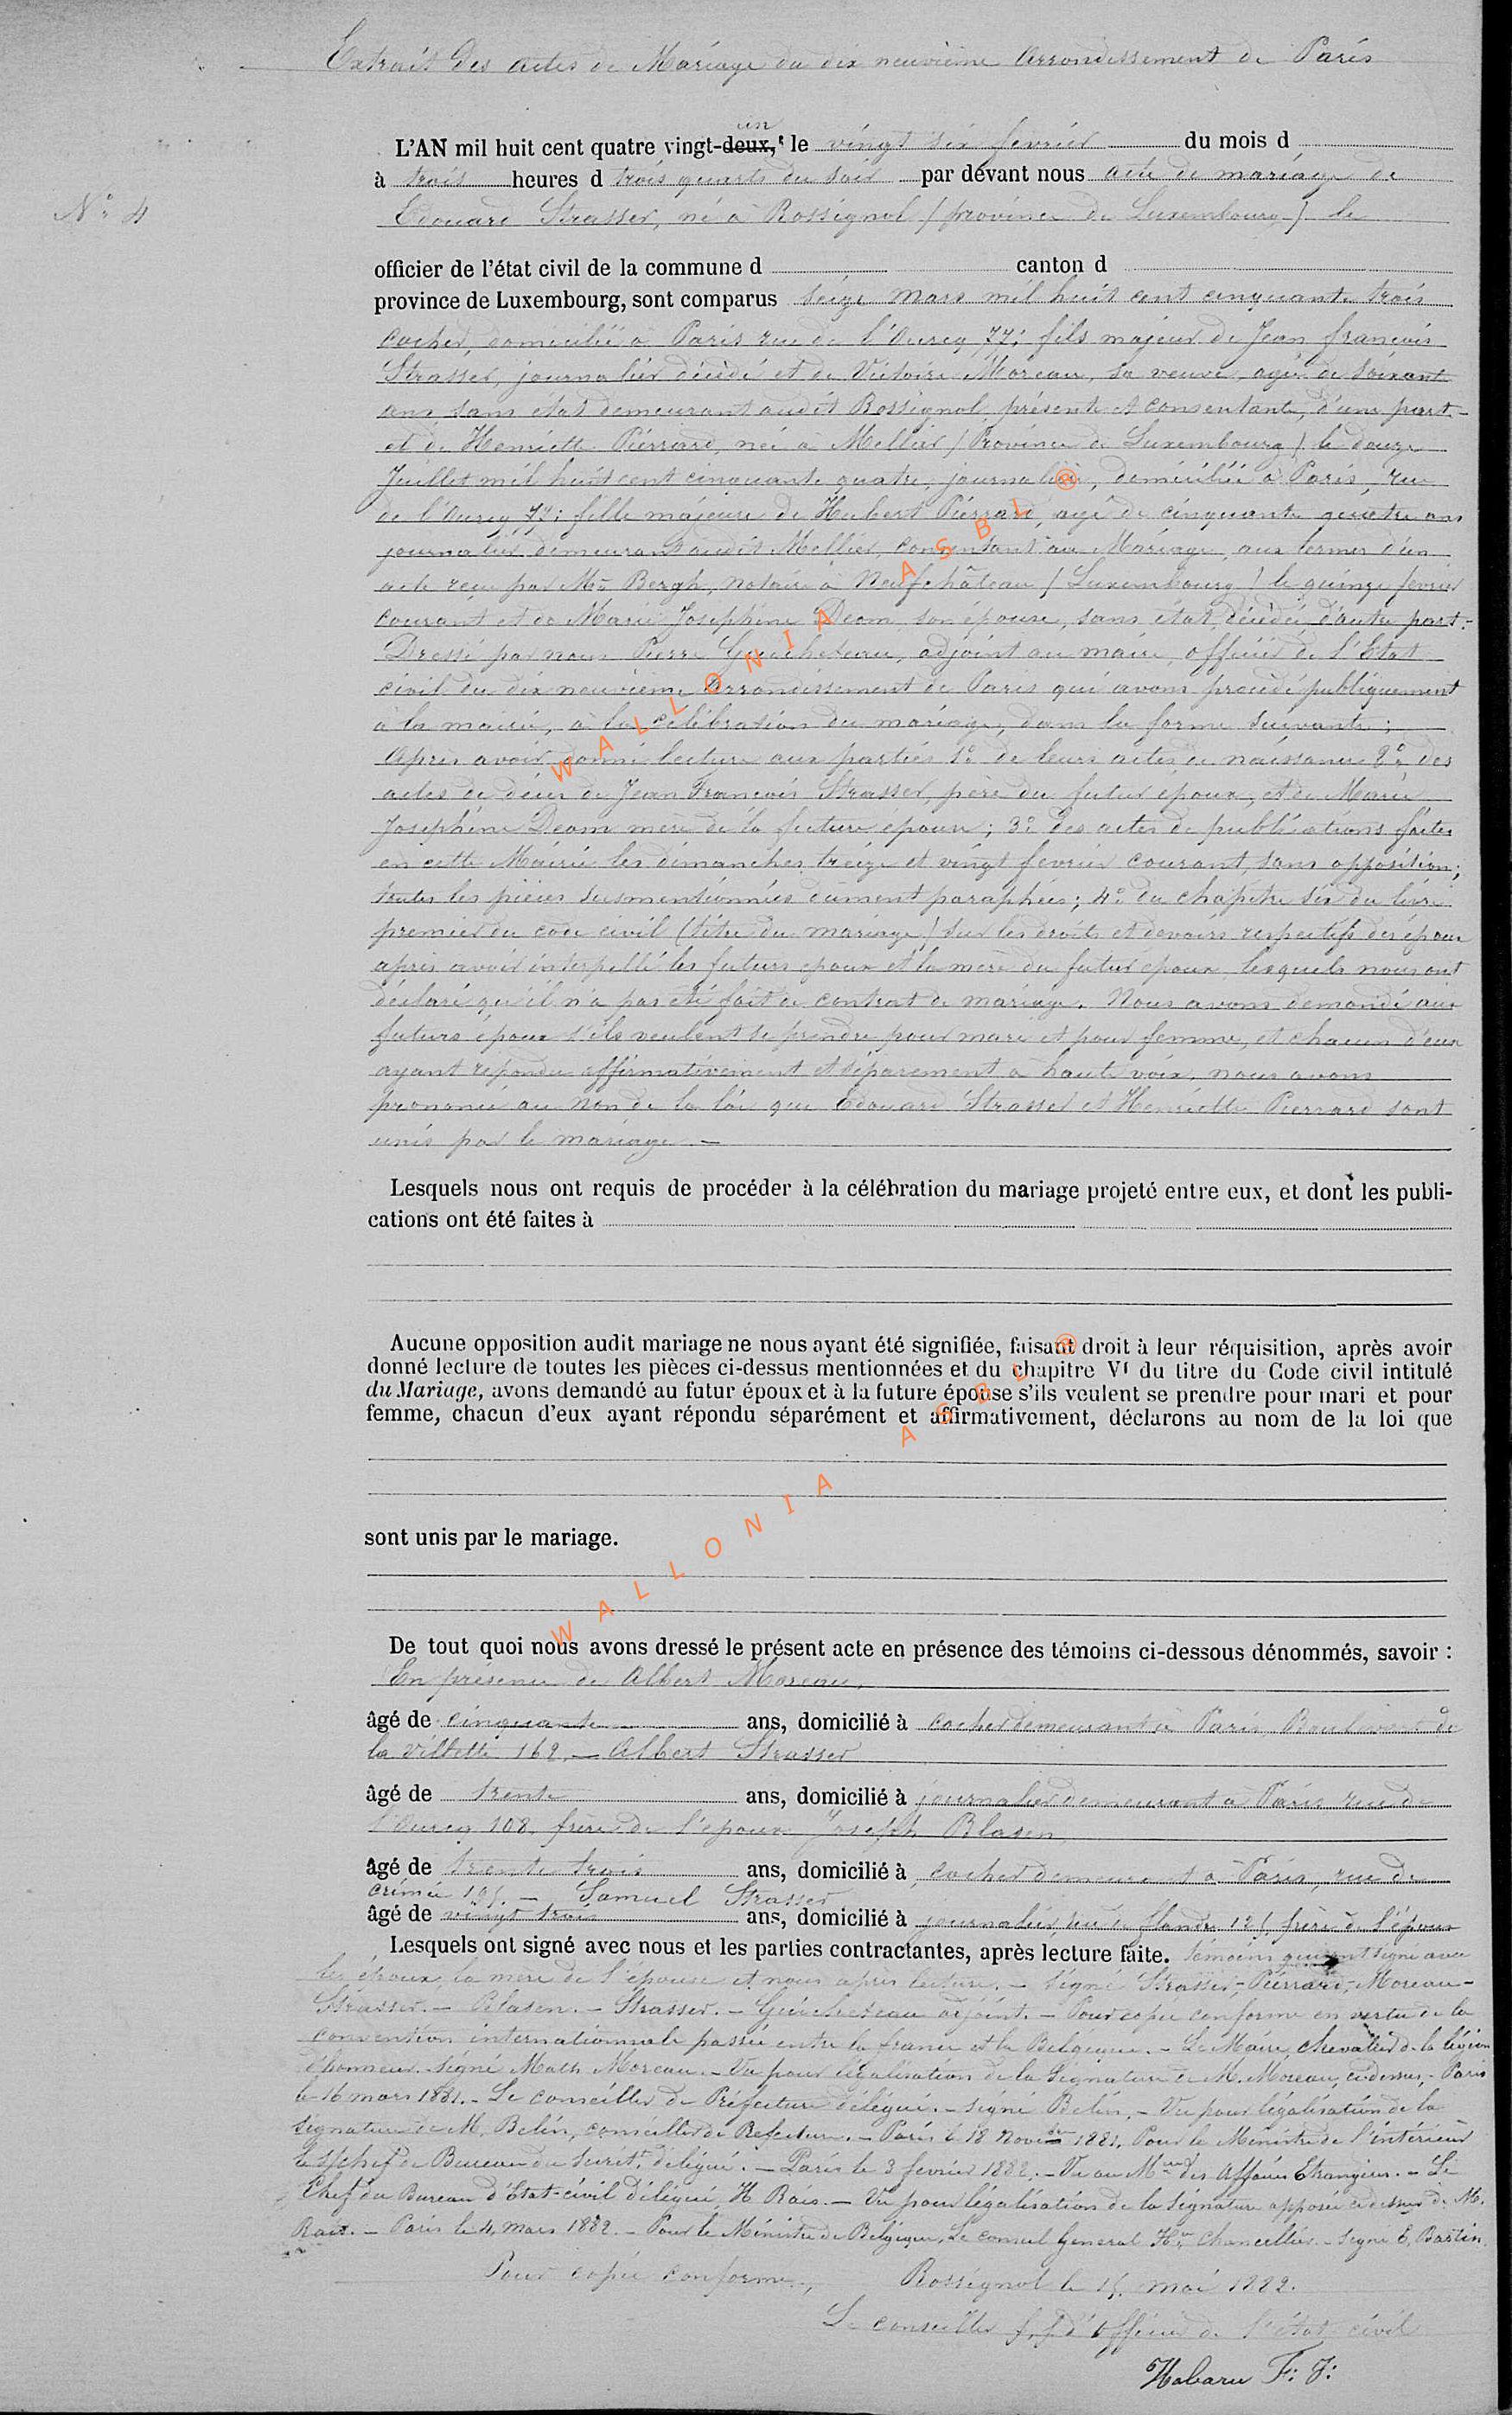 Extrait des actes de Mariage du dix neuvième Arrondissement de Paris
un
L'AN mil huit cent quatre vingt-deux, le vingt six fevrier du mois d
à trois heures d trois quarts du soir par devant nous acte de mariage de
N° 4
Edouard Strasser, né à Rossignol (province de Luxembourg) le
officier de l'état civil de la commune d canton d
province de Luxembourg, sont comparus seize mars mil huit cent cinquante trois
cocher, domicilié à Paris rue de l'Ourcq, 77; fils majeur de Jean françois
Strasser, journalier décédé et de Victoire Moreau, sa veuve, agée de soixante
ans, sans état demeurant audit Rossignol, présente et consentante, d'une part.-
et de Henriette Pierrard, née à Mellier (Province de Luxembourg) le douze
Juillet mil huit cent cinquante quatre, journalière, domiciliée à Paris, rue
de l'Ourcq, 77; fille majeure de Hubert Pierrard, agé de cinquante quatre ans
journalier demeurant audit Mellier, consentant au Mariage, aux termes d'un
acte reçu par Me Bergh, notaire à Neufchâteau (Luxembourg) le quinze fevrier
courant et de Marie Joséphine Deom, son épouse, sans état, décédée d'autre part.-
Dressé par nous Pierre Guicheteau, adjoint au maire, officier de l'Etat
civil du dix neuvième Arrondissement de Paris qui avons procédé publiquement
à la mairie, à la célébration du mariage, dans la forme suivante;
Après avoir donné lecture aux parties 1° de leurs actes de naissance 2° des
actes de décès de Jean François Strasser, père du futur époux, et de Marie
Joséphine Deom mère de la future épouse; 3° des actes de publications faites
en cette Mairie les dimanches treize et vingt fevrier courant, sans opposition;
toutes les pièces susmentionnées dûment paraphées; 4° du chapitre six du livre
premier du code civil (titre du mariage) sur les droits et devoirs respectifs des époux
après avoir interpellé les futurs époux et la mère du futur époux lesquels nous ont
déclaré qu'il n'a pas été fait de contrat de mariage. Nous avons demandé aux
futurs époux s'ils veulent se prendre pour mari et pour femme, et chacun d'eux
ayant répondu affirmativement et séparement à haute voix, nous avons
prononcé au nom de la loi que Edouard Strasser et Henriette Pierrard sont
unis par le mariage. -
Lesquels nous ont requis de procéder à la célébration du mariage projeté entre eux, et dont les publi-
cations ont été faites à
Aucune opposition audit mariage ne nous ayant été signifiée, faisant droit à leur réquisition, après avoir
donné lecture de toutes les pièces ci-dessus mentionnées et du chapitre VI du titre du Code civil intitulé
du Mariage, avons demandé au futur époux et à la future épouse s'ils veulent se prendre pour mari et pour
femme, chacun d'eux ayant répondu séparément et affirmativement, déclarons au nom de la loi que
sont unis par le mariage.
De tout quoi nous avons dressé le présent acte en présence des témoins ci-dessous dénommés, savoir :
En présence de Albert Moreau,
âgé de cinquante ans, domicilié à cocher demeurant à Paris, Boulevard de
la Villette 162. - Albert Strasser
âgé de trente ans, domicilié à journalier demeurant à Paris rue de
l'Ourcq 108, frère de l'époux Joseph Blasen
âgé de trente trois ans, domicilié à cocher demeurant à Paris, rue de
crimée - Samuel Strasser
âgé de vingt trois ans, domicilié à journalier, rue de flandre frère de l'époux
Lesquels ont signé avec nous et les parties contractantes, après lecture faite. témoins qui ont signé avec
les époux, la mère de l'épouse et nous après lecture. - Signé Strasser,- Pierrard,- Moreau-
Strasser. - Blasen. - Strasser. - Guicheteau adjoint. - Pour copie conforme en vertu de la
convention internationale passée entre la france et la Belgique. - Le Maire, chevalier de la légion
d'honneur. Signé Math Moreau. - Vu pour légalisation de la Signature de M. Moreau, ci-dessus,- Paris
le 16 mars 1881. - Le conseiller de Préfecture délégué. - signé Belin. - Vu pour légalisation de la
signature de M. Belin, conseiller de Prefecture. - Paris le 18 Novembre 1881. Pour le Ministre de l'intérieur
le s/chef de Bureau du Secrét. délégué. - Paris le 3 fevrier 1882. - Vu au Min des Affaires Etrangères. - Le
Chef du Bureau d'Etat-civil délégué, H. Rais. - Vu pour légalisation de la signature apposée ci dessus de M.
Rais. - Paris le 4 mars 1882. - Pour le Ministre de Belgique, Le consul General Hre Chancellier. - Signé E. Bastin.
Pour copie conforme, Rossignol le 15 mai 1882.
Le conseiller f. f. d'officier de l'état civil
Habaru F: J:
WALLONIA ASBL ®
WALLONIA ASBL ®